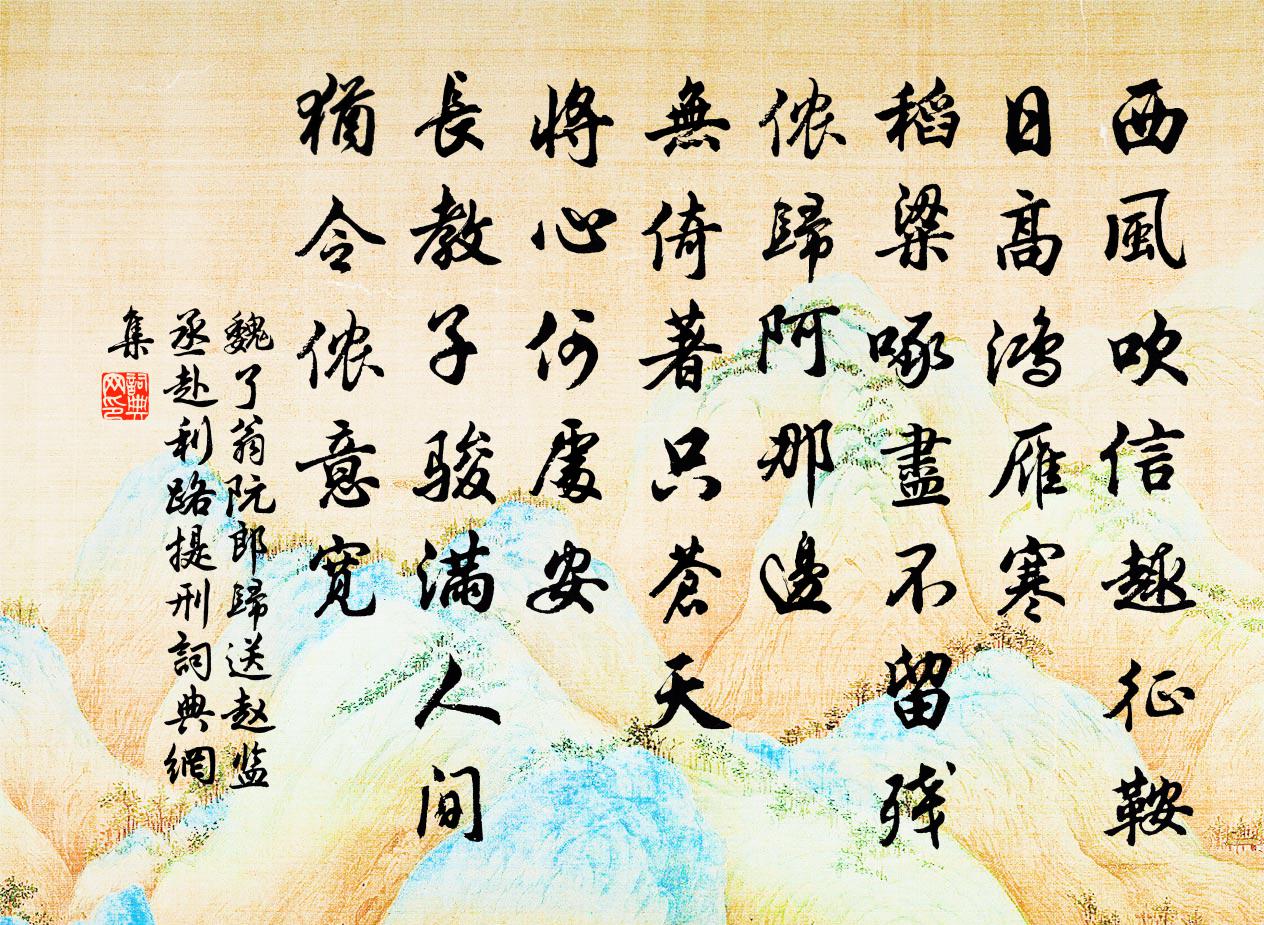 西風吹信趣征鞍
日高鴻雁寒
稻粱啄盡不留残
侬歸阿那邊
無倚著只蒼天
將心何處安
長教子骏满人间
猶令侬意宽
魏了翁阮郎歸送赵监
丞赴利路提刑詞典網
集
詞典網印